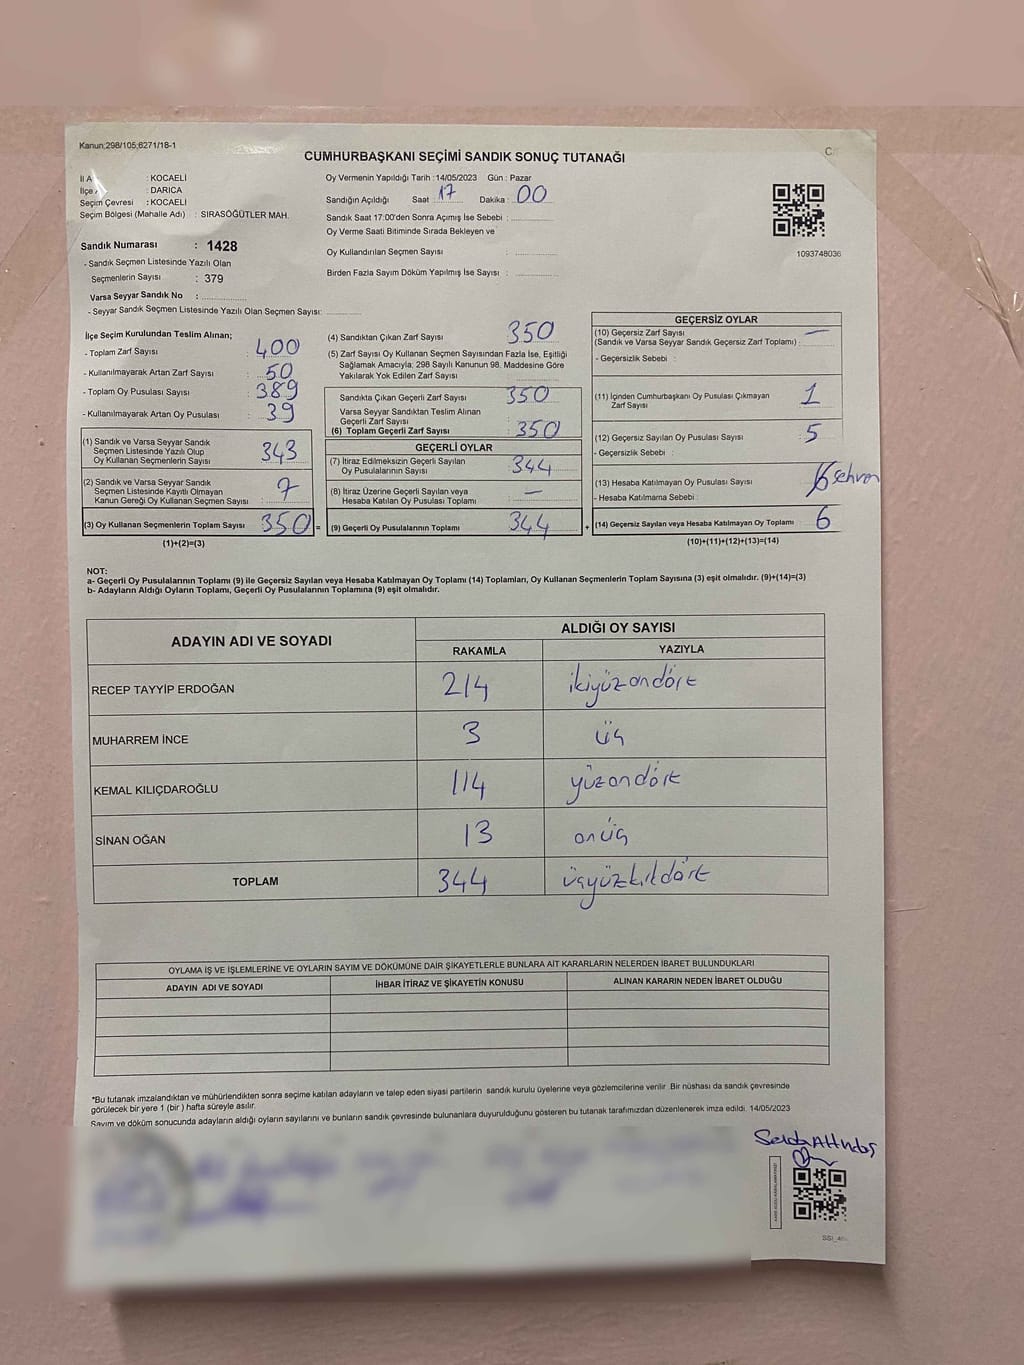 Kanun;298/105;6271/18-1
CUMHURBAŞKANI SEÇİMİ SANDIK SONUÇ TUTANAĞI
: KOCAELİ
: DARICA
Seçim Çevresi : KOCAELİ
Seçim Bölgesi (Mahalle Adı) : SIRASÖĞÜTLER MAH.
Sandık Numarası : 1428
- Sandık Seçmen Listesinde Yazılı Olan
Seçmenlerin Sayısı : 379
Varsa Seyyar Sandık No :
- Seyyar Sandık Seçmen Listesinde Yazılı Olan Seçmen Sayısı:
Oy Vermenin Yapıldığı Tarih : 14/05/2023 Gün : Pazar
Sandığın Açıldığı Saat : 17 Dakika : 00
Sandık Saat 17:00'den Sonra Açımış İse Sebebi :
Oy Verme Saati Bitiminde Sırada Bekleyen ve
Oy Kullandırılan Seçmen Sayısı :
Birden Fazla Sayım Döküm Yapılmış İse Sayısı :
1093748036
İlçe Seçim Kurulundan Teslim Alınan;
- Toplam Zarf Sayısı : 400
- Kullanılmayarak Artan Zarf Sayısı : 50
- Toplam Oy Pusulası Sayısı : 389
- Kullanılmayarak Artan Oy Pusulası : 39
(1) Sandık ve Varsa Seyyar Sandık
Seçmen Listesinde Yazılı Olup
Oy Kullanan Seçmenlerin Sayısı : 343
(2) Sandık ve Varsa Seyyar Sandık
Seçmen Listesinde Kayıtlı Olmayan
Kanun Gereği Oy Kullanan Seçmen Sayısı : 7
(3) Oy Kullanan Seçmenlerin Toplam Sayısı 350 =
(1)+(2)=(3)
(4) Sandıktan Çıkan Zarf Sayısı : 350
(5) Zarf Sayısı Oy Kullanan Seçmen Sayısından Fazla İse, Eşitliği
Sağlamak Amacıyla; 298 Sayılı Kanunun 98. Maddesine Göre
Yakılarak Yok Edilen Zarf Sayısı :
Sandıkta Çıkan Geçerli Zarf Sayısı : 350
Varsa Seyyar Sandıktan Teslim Alınan
Geçerli Zarf Sayısı :
(6) Toplam Geçerli Zarf Sayısı : 350
GEÇERLİ OYLAR
(7) İtiraz Edilmeksizin Geçerli Sayılan
Oy Pusulalarının Sayısı : 344
(8) İtiraz Üzerine Geçerli Sayılan veya
Hesaba Katılan Oy Pusulası Toplamı : —
(9) Geçerli Oy Pusulalarının Toplamı : 344 +
GEÇERSİZ OYLAR
(10) Geçersiz Zarf Sayısı
(Sandık ve Varsa Seyyar Sandık Geçersiz Zarf Toplamı) : —
- Geçersizlik Sebebi :
(11) İçinden Cumhurbaşkanı Oy Pusulası Çıkmayan
Zarf Sayısı : 1
(12) Geçersiz Sayılan Oy Pusulası Sayısı : 5
- Geçersizlik Sebebi :
(13) Hesaba Katılmayan Oy Pusulası Sayısı :
- Hesaba Katılmama Sebebi :
(14) Geçersiz Sayılan veya Hesaba Katılmayan Oy Toplamı : 6
(10)+(11)+(12)+(13)=(14)
NOT:
a- Geçerli Oy Pusulalarının Toplamı (9) ile Geçersiz Sayılan veya Hesaba Katılmayan Oy Toplamı (14) Toplamları, Oy Kullanan Seçmenlerin Toplam Sayısına (3) eşit olmalıdır. (9)+(14)=(3)
b- Adayların Aldığı Oyların Toplamı, Geçerli Oy Pusulalarının Toplamına (9) eşit olmalıdır.
ADAYIN ADI VE SOYADI ALDIĞI OY SAYISI
RAKAMLA YAZIYLA
RECEP TAYYİP ERDOĞAN 214 ikiyüzondört
MUHARREM İNCE 3 üç
KEMAL KILIÇDAROĞLU 114 yüzondört
SİNAN OĞAN 13 onüç
TOPLAM 344 üçyüzkırkdört
OYLAMA İŞ VE İŞLEMLERİNE VE OYLARIN SAYIM VE DÖKÜMÜNE DAİR ŞİKAYETLERLE BUNLARA AİT KARARLARIN NELERDEN İBARET BULUNDUKLARI
ADAYIN ADI VE SOYADI İHBAR İTİRAZ VE ŞİKAYETİN KONUSU ALINAN KARARIN NEDEN İBARET OLDUĞU
*Bu tutanak imzalandıktan ve mühürlendikten sonra seçime katılan adayların ve talep eden siyasi partilerin sandık kurulu üyelerine veya gözlemcilerine verilir .Bir nüshası da sandık çevresinde
görülecek bir yere 1 (bir ) hafta süreyle asılır.
Sayım ve döküm sonucunda adayların aldığı oyların sayılarını ve bunların sandık çevresinde bulunanlara duyurulduğunu gösteren bu tutanak tarafımızdan düzenlenerek imza edildi. 14/05/2023